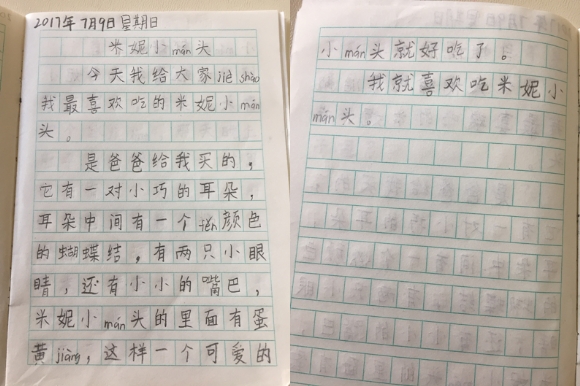 2017年7月9日 星期日
米妮小mán头
今天我给大家jiè shào
我最喜欢吃的米妮小mán
头。
是爸爸给我买的，
它有一对小巧的耳朵，
耳朵中间有一个fěn颜色
的蝴蝶结，有两只小眼
睛，还有小小的嘴巴，
米妮小mán头的里面有蛋
黄jiàng，这样一个可爱的
小mán头就好吃了。
我就喜欢吃米妮小
mán头。